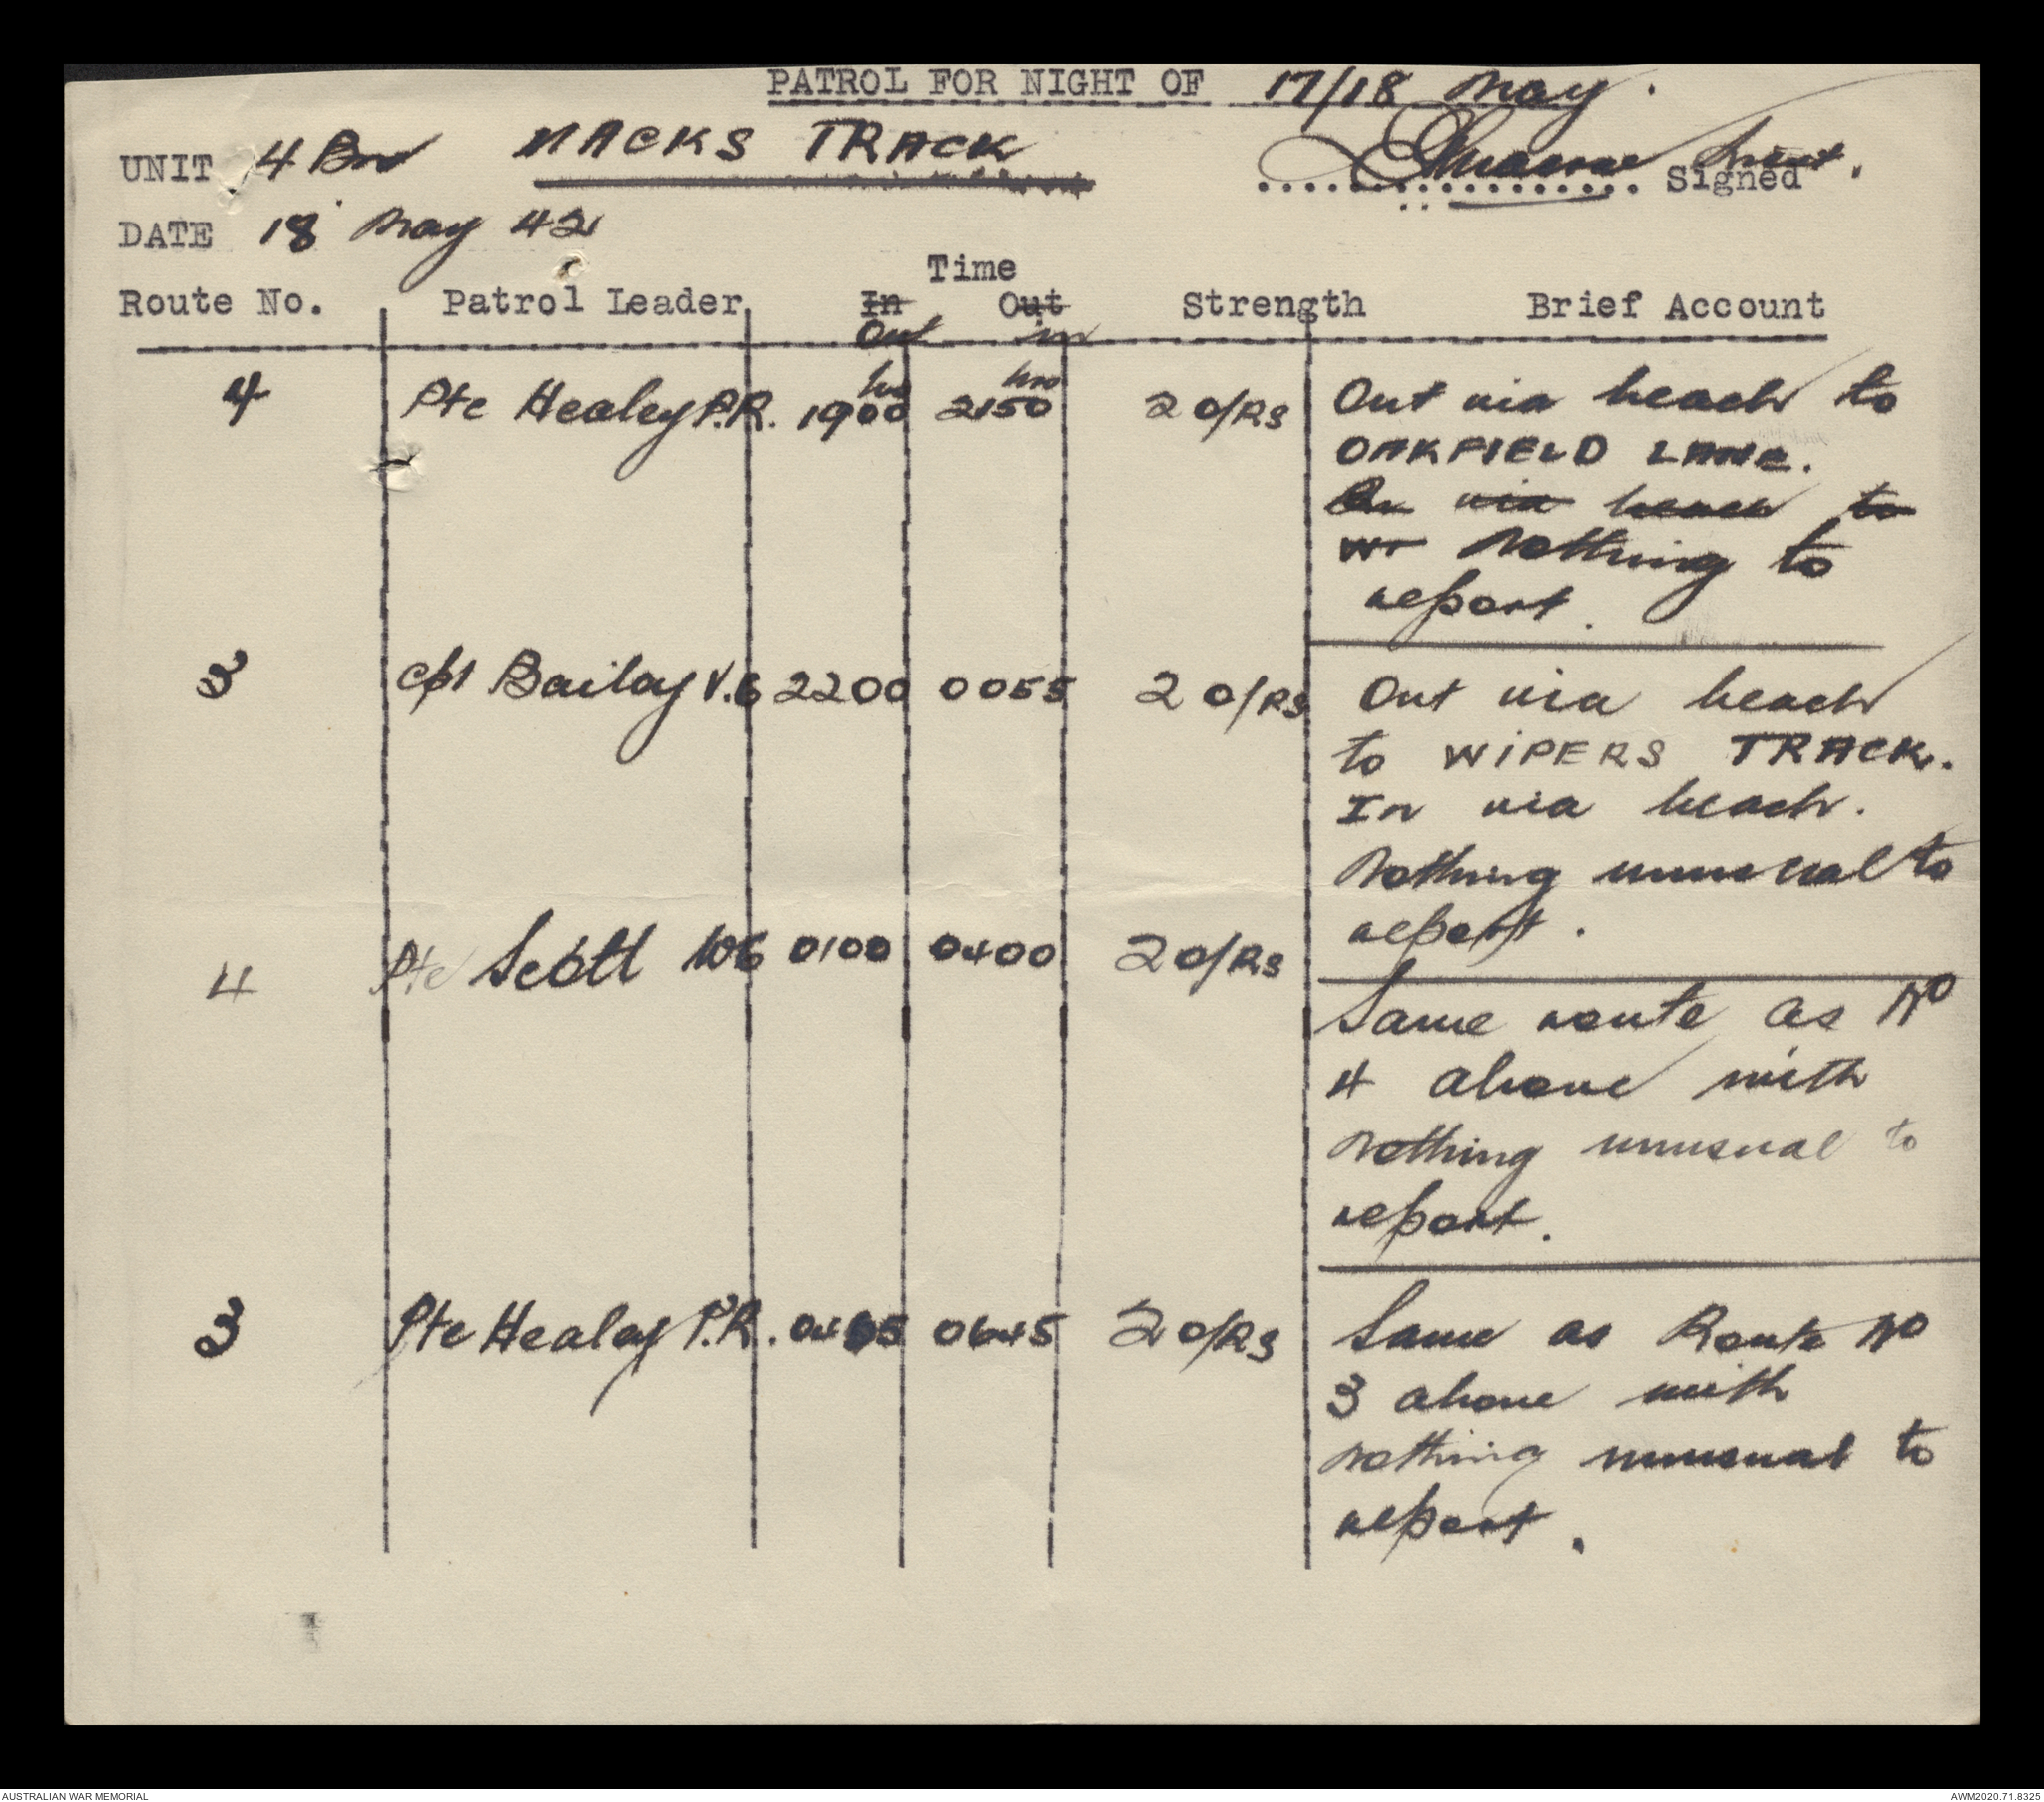 PATROL FOR NIGHT OF 17/18 May.
UNIT 4 Bn MACKS TRACK
Signed Lieut.
DATE 18 May 42
Time
Route No. Patrol Leader In Out Strength Brief Account
Out in
4 Pte Healey P.R. 1900 hrs 2150 hrs 2 O/Rs Out via beach to
OAKFIELD LANE.
via beach to
Nothing to
report.
3 Cpl Bailey V.G 2200 0055 2 O/Rs Out via beach
to WIPERS TRACK.
In via beach.
Nothing unusual to
report.
4 Pte Scott WG 0100 0400 2 O/Rs
Same route as No
4 above with
nothing unusual to
report.
3 Pte Healey P.R. 0405 0645 2 O/Rs Same as Route No
3 above with
nothing unusual to
report.
AUSTRALIAN WAR MEMORIAL AWM2020.71.8325